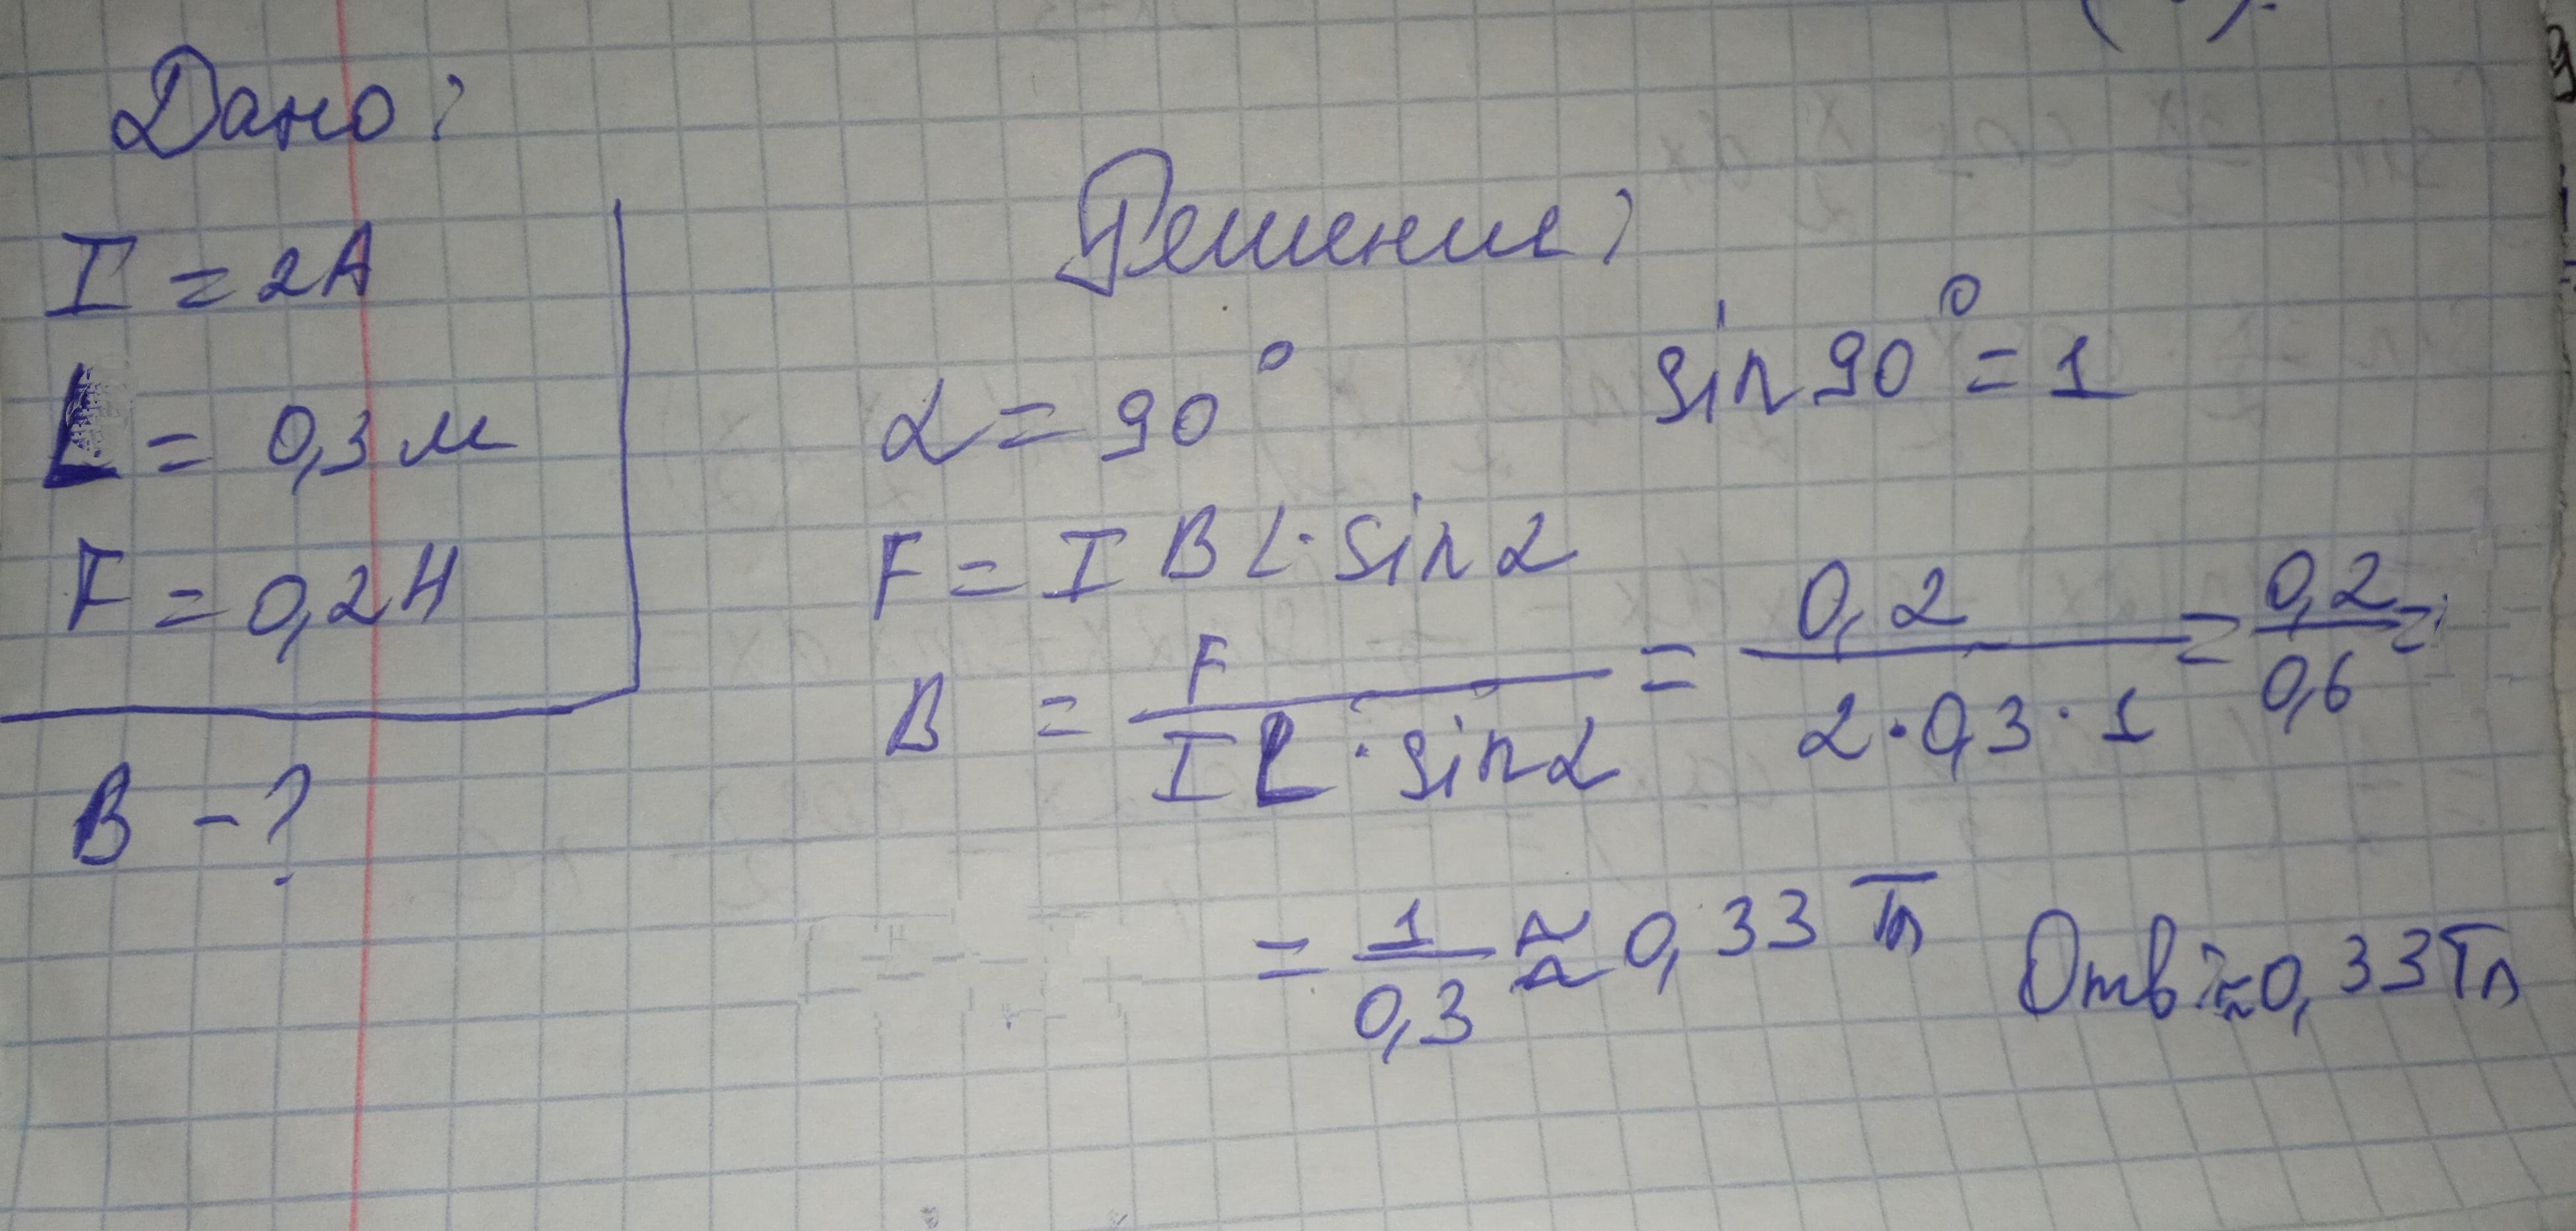 Дано:
I = 2А
L = 0,3 м
F = 0,2Н
B - ?
Решение:
α = 90° sin 90° = 1
F = I B L · sin α
B = F / (I L · sin α) = 0,2 / (2 · 0,3 · 1) = 0,2 / 0,6 =
= 1 / 0,3 ≈ 0,33 Тл Отв: ≈ 0,33 Тл